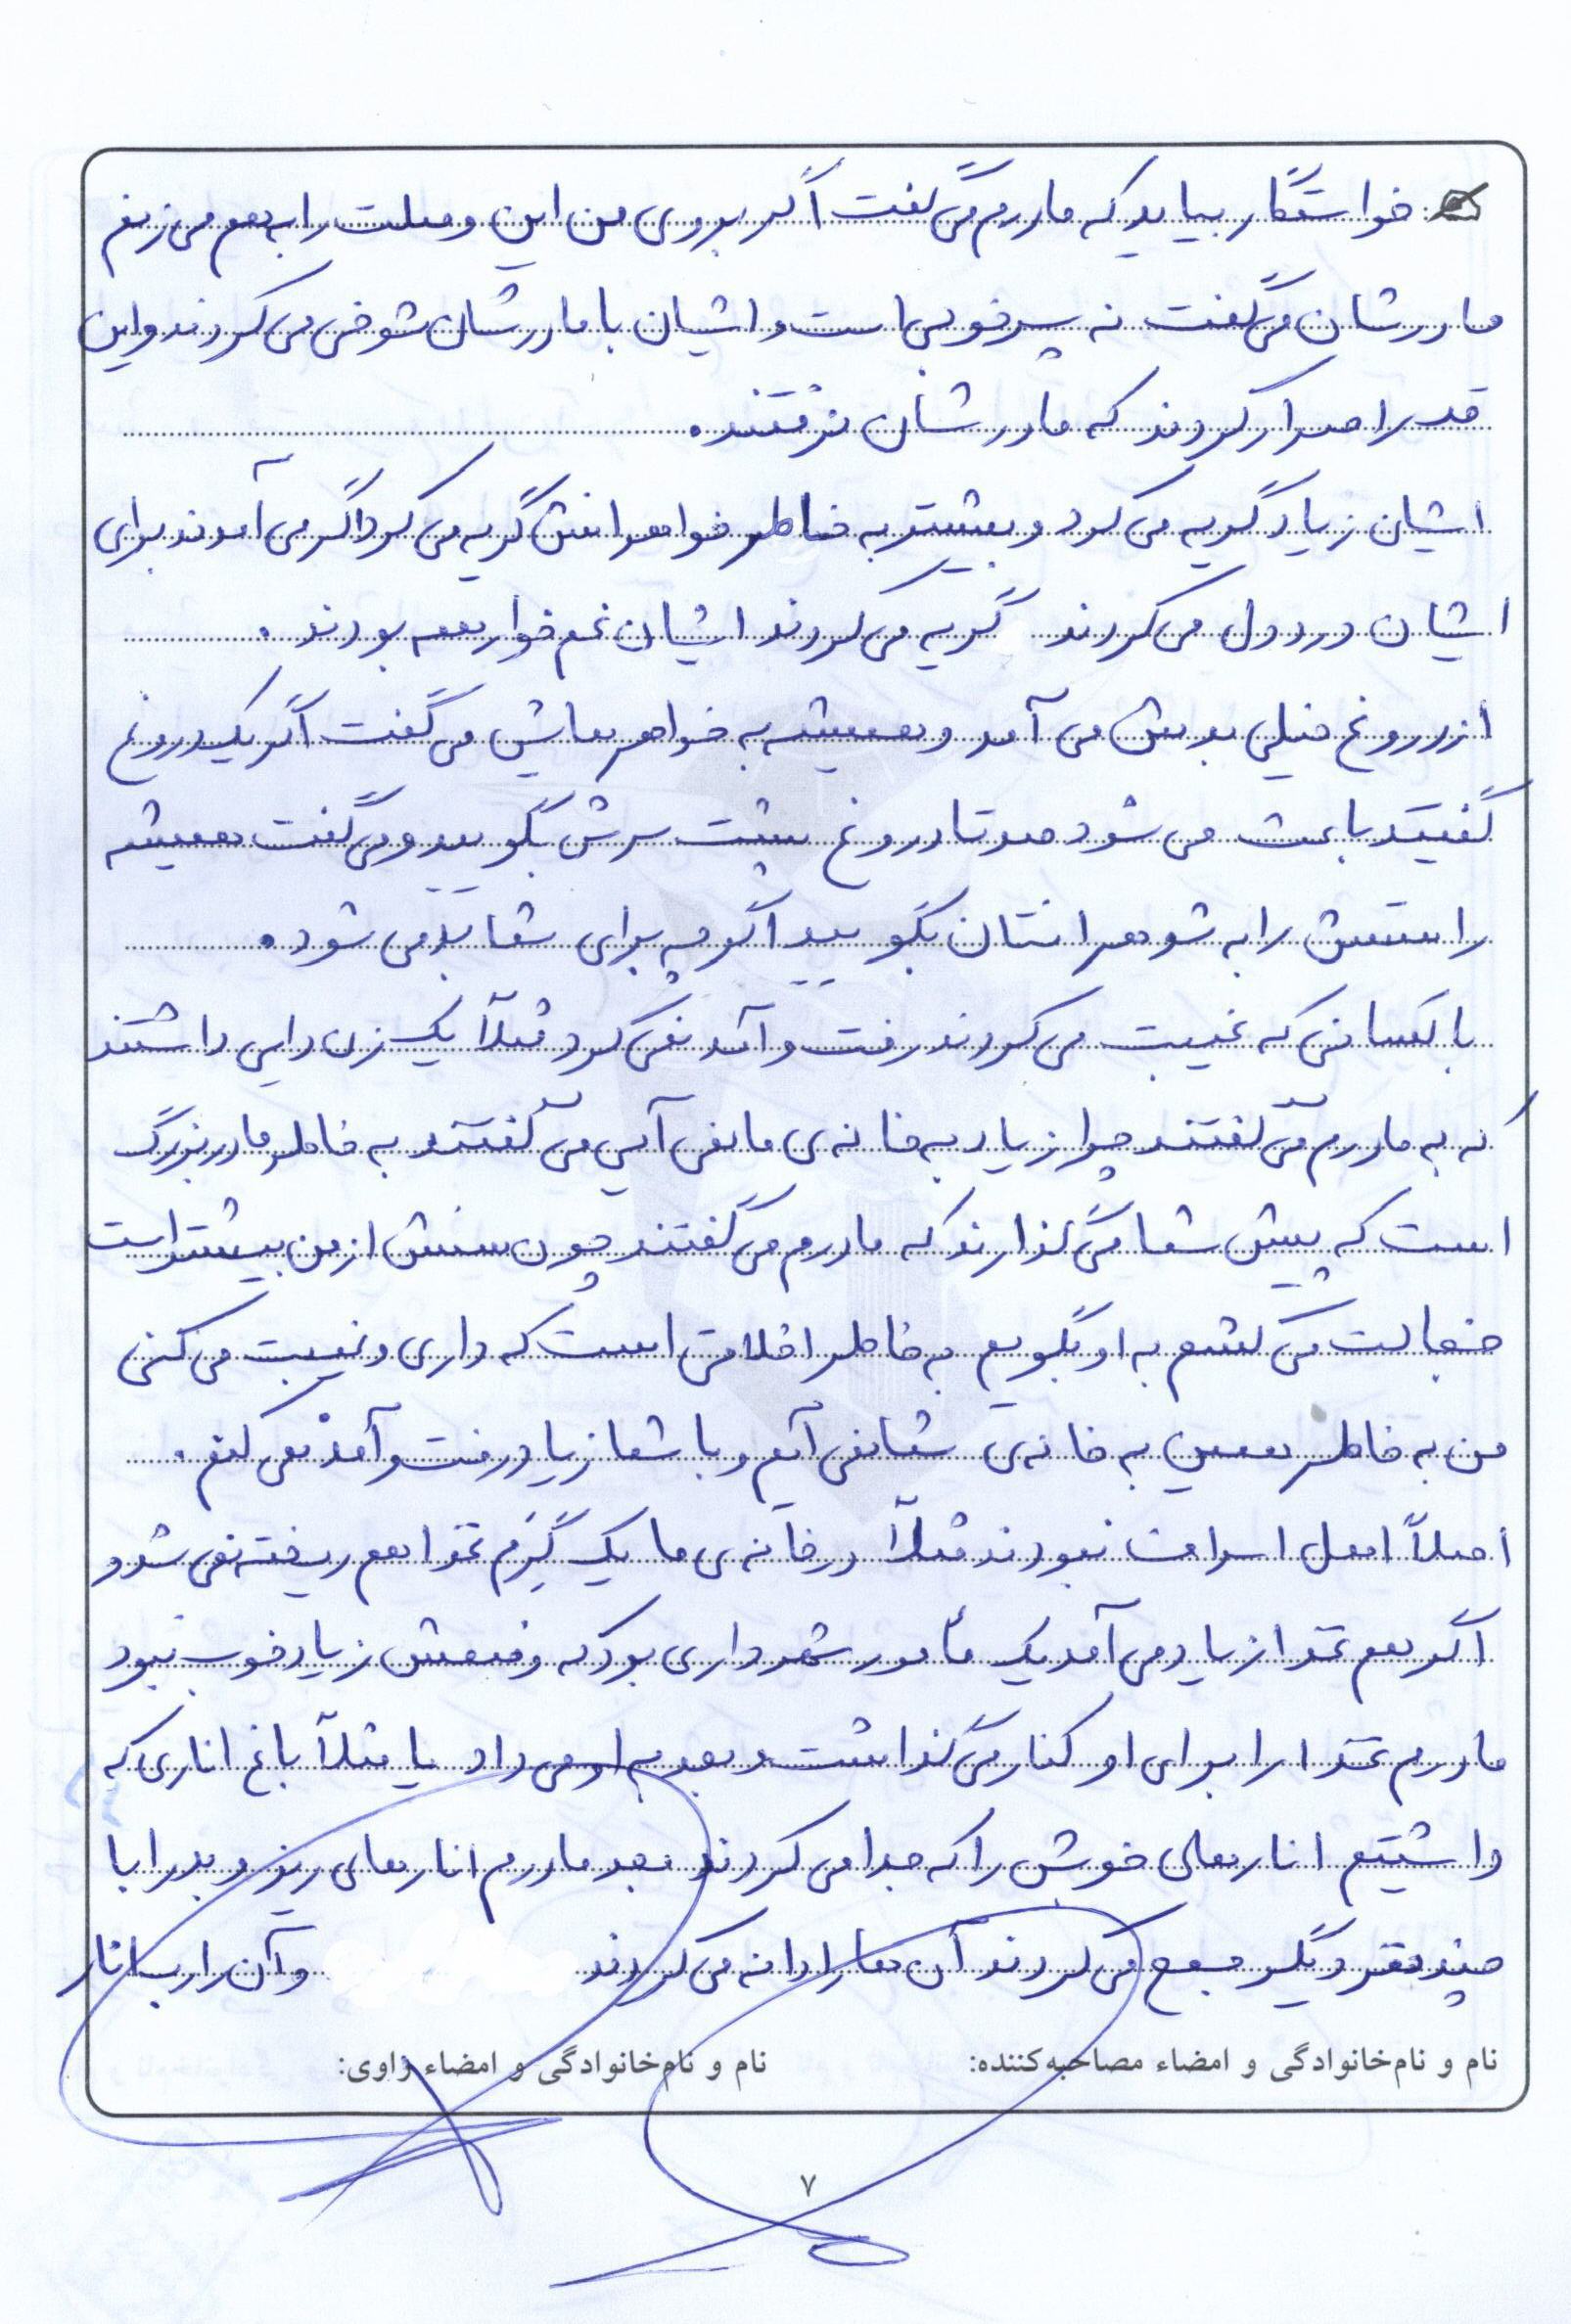 خواستگار بیاید که مادرم می گفت اگر بروی من این وصلت را بهم می زنم
مادرشان می گفت نه پسر خوبی است و ایشان با مادرشان شوخی می کردند و این
قدر اصرار کردند که مادرشان نرفتند.
ایشان زیاد گریه می کرد و بیشتر به خاطر خواهرانش گریه می کرد اگر می آمدند برای
ایشان درددل می کردند گریه می کردند ایشان غم خوار همه بودند.
از دروغ خیلی بدش می آمد و همیشه به خواهرهایش می گفت اگر یک دروغ
گفتید باعث می شود صد تا دروغ پشت سرش بگویید و می گفت همیشه
راستش را به شوهرانتان بگویید اگر چه برای شما بد می شود.
با کسانی که غیبت می کردند رفت و آمد نمی کرد مثلاً یک زن دایی داشتند
که به مادرم می گفتند چرا زیاد به خانه ی ما نمی آیی می گفتند به خاطر مادربزرگ
است که پیش شما می گذارند که مادرم می گفتند چون سنش از من بیشتر است
خجالت می کشم به او بگویم به خاطر اخلاقی است که داری و غیبت می کنی
من به خاطر همین به خانه ی شما نمی آیم و با شما زیاد رفت و آمد نمی کنم.
اصلاً اهل اسراف نبودند مثلاً در خانه ی ما یک گرم غذا هم ریخته نمی شد و
اگر هم غذا زیاد می آمد یک مأمور شهرداری بود که وضعش زیاد خوب نبود
مادرم غذا را برای او کنار می گذاشت و بعد به او می داد یا مثلاً باغ اناری که
داشتیم انارهای خوش را که جدا می کردند بعد مادرم انارهای ریز و بد را با
چند نفر دیگر جمع می کردند آن ها را دانه می کردند و آن را رب انار
نام و نام‌خانوادگی و امضاء مصاحبه‌کننده: نام و نام‌خانوادگی و امضاء راوی:
۷